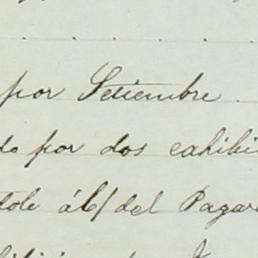 por Setiembre
do por dos exhibi
tole ál c/ del Pagar